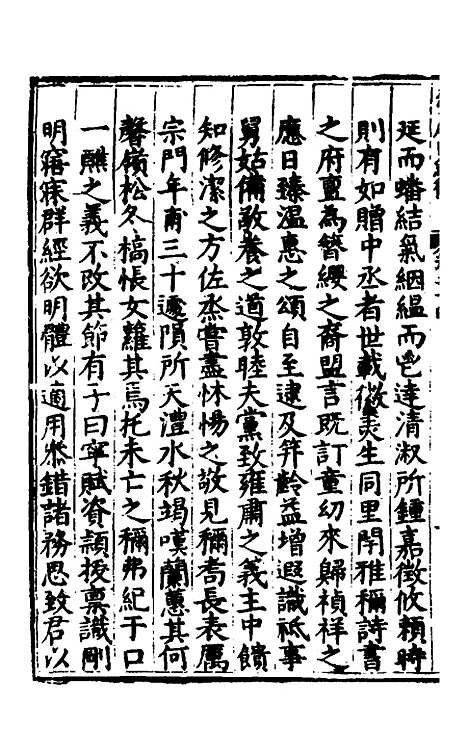 延而蟠結氣絪緼而邕達清淑所鍾嘉徵攸賴時
則有如贈中丞者世載徽美生同里閈雅稱詩書
之府亶為簪纓之裔盟言既訂童幼來歸禎祥之
應日臻溫惠之頌自至逮及笄齡益增遐識祗事
舅姑備敬養之道敦睦夫黨致雍肅之義主中饋
知修潔之方佐烝嘗盡怵惕之敬見稱耆長表厲
宗門年甫三十遽隕所天澧水秋竭嘆蘭蕙其何
馨嶺松久槁悵女蘿其焉托未亡之稱弗紀于口
一醮之義不改其節有子曰寧賦資穎拔禀識剛
明寤寐群經欲明體以適用叅錯諸務思致君以